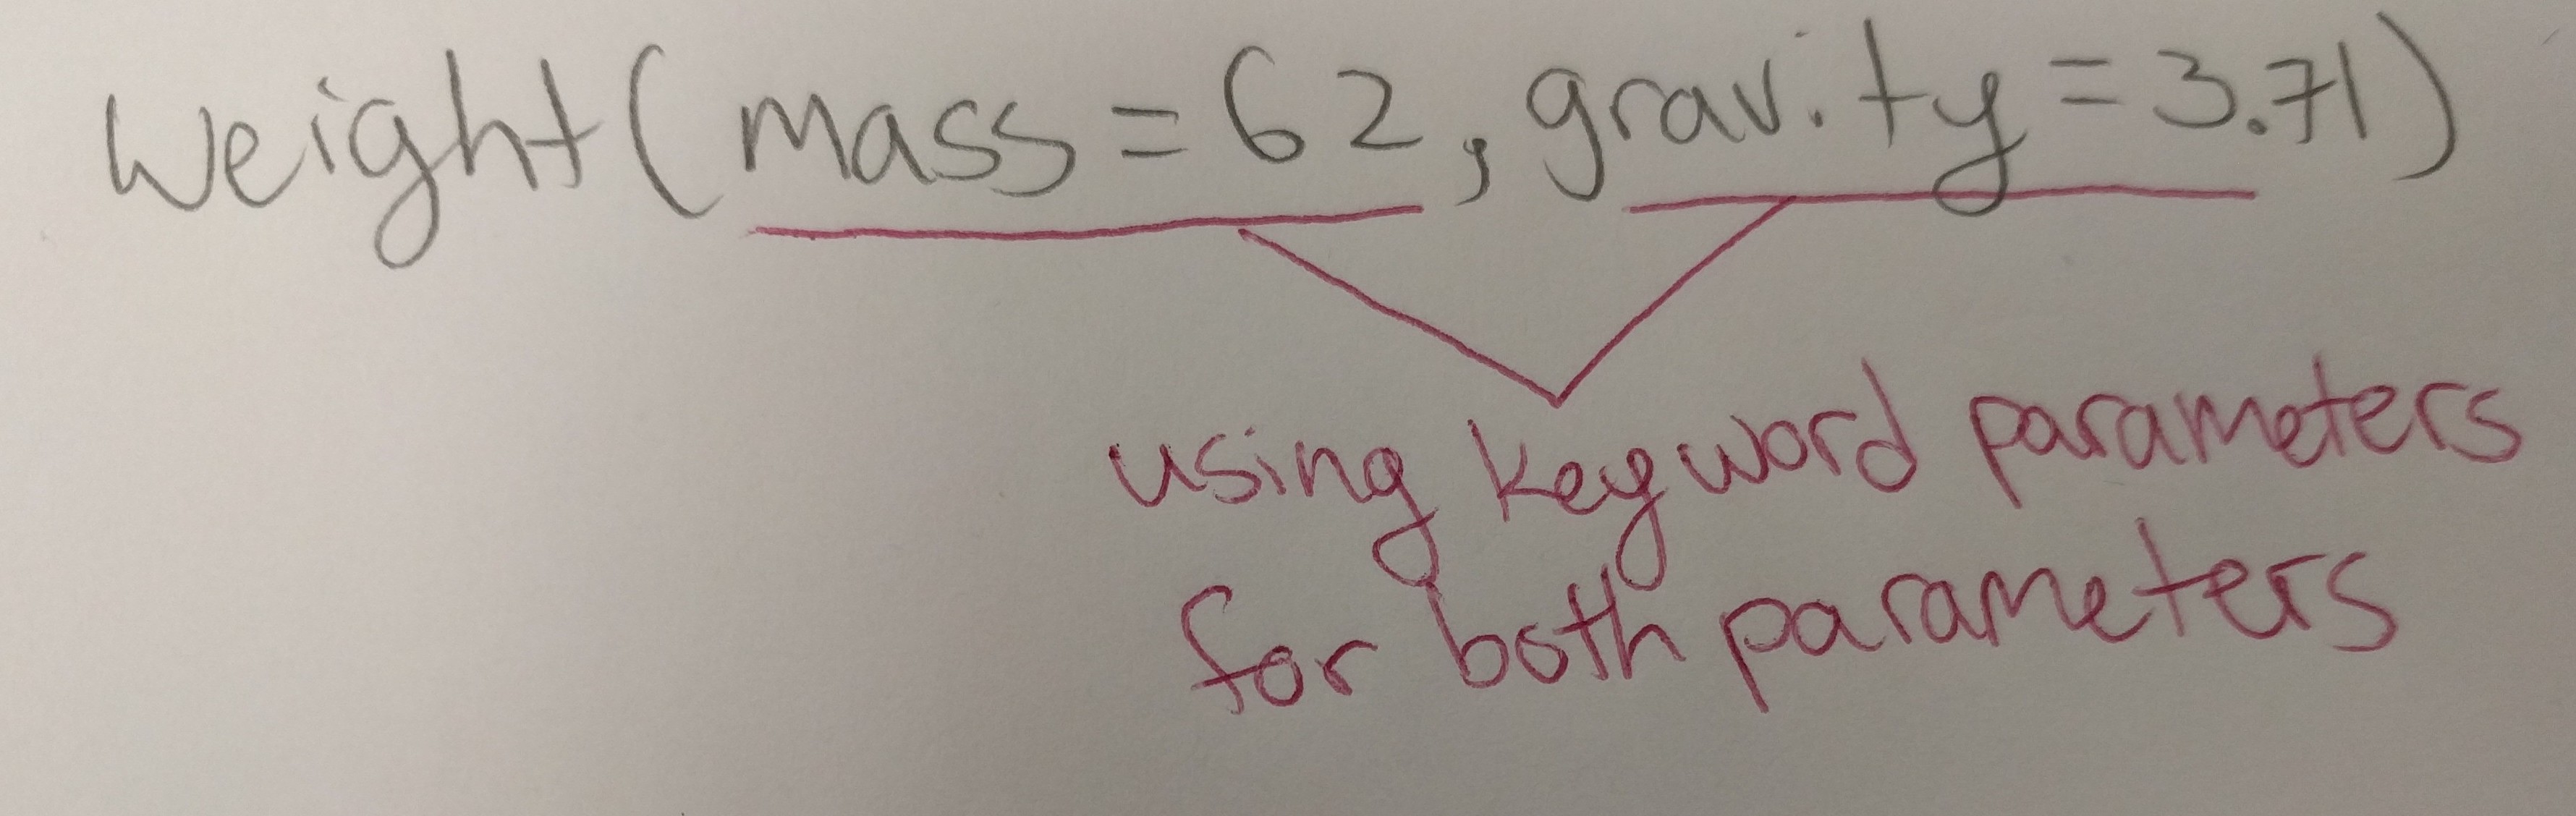 weight(mass=62, gravity=3.71)
using keyword parameters
for both parameters